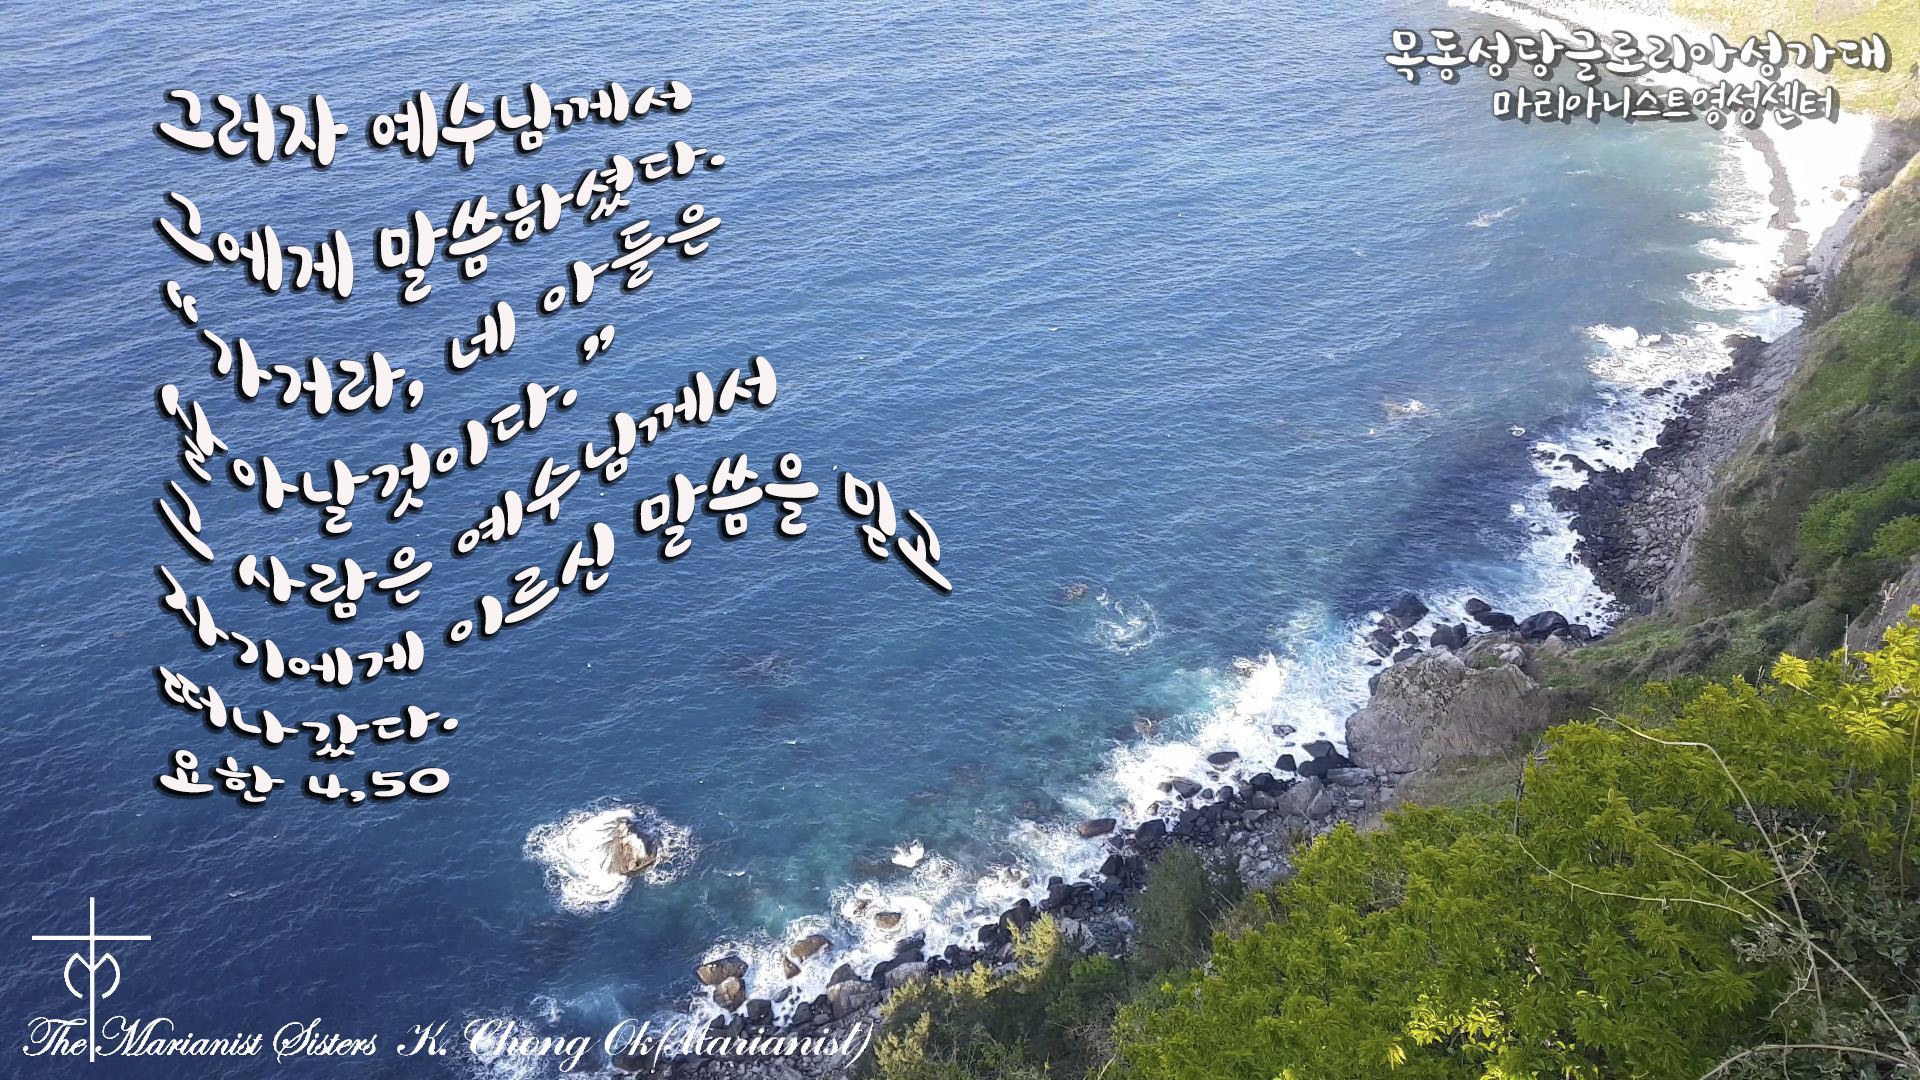 목동성당글로리아성가대
마리아니스트영성센터
그러자 예수님께서
그에게 말씀하셨다.
“가거라, 네 아들은
살아날것이다.”
그 사람은 예수님께서
자기에게 이르신 말씀을 믿고
떠나갔다.
요한 4,50
The Marianist Sisters K. Chong Ok(Marianist)